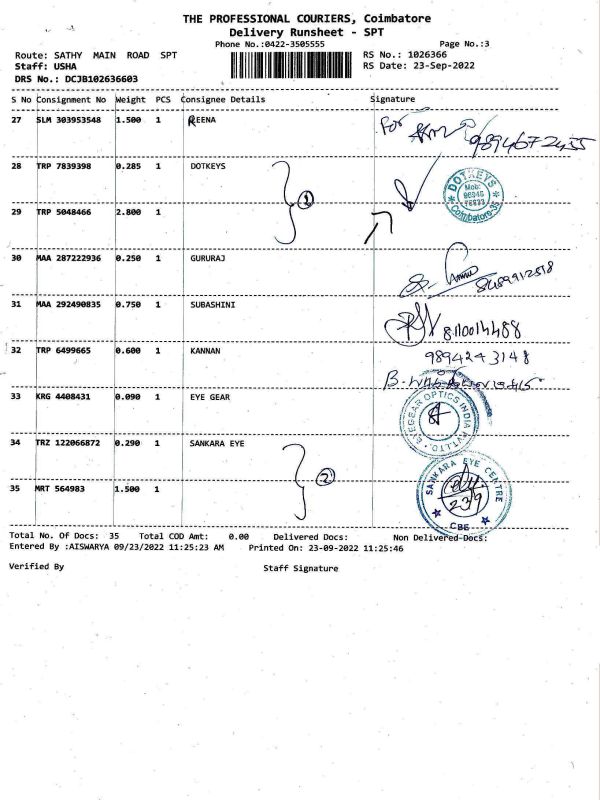 THE PROFESSIONAL COURIERS, Coimbatore
Delivery Runsheet - SPT
Phone No.:0422-3505555 Page No.:3
Route: SATHY MAIN ROAD SPT RS No.: 1026366
Staff: USHA RS Date: 23-Sep-2022
DRS No.: DCJB102636603
S No Consignment No Weight PCS Consignee Details Signature
27 SLM 303953548 1.500 1 REENA
For
9894672455
28 TRP 7839398 0.285 1 DOTKEYS
① DOTKEYS Mob: Coimbatore-35
29 TRP 5048466 2.800 1
30 MAA 287222936 0.250 1 GURURAJ
8489912518
31 MAA 292490835 0.750 1 SUBASHINI
8110014488
32 TRP 6499665 0.600 1 KANNAN 9894243148
33 KRG 4408431 0.090 1 EYE GEAR
EYEGEAR OPTICS INDIA PVT.LTD.
34 TRZ 122066872 0.290 1 SANKARA EYE
② SANKARA EYE CENTRE
23/9
CBE
35 MRT 564983 1.500 1
Total No. Of Docs: 35 Total COD Amt: 0.00 Delivered Docs: Non Delivered Docs:
Entered By :AISWARYA 09/23/2022 11:25:23 AM Printed On: 23-09-2022 11:25:46
Verified By Staff Signature